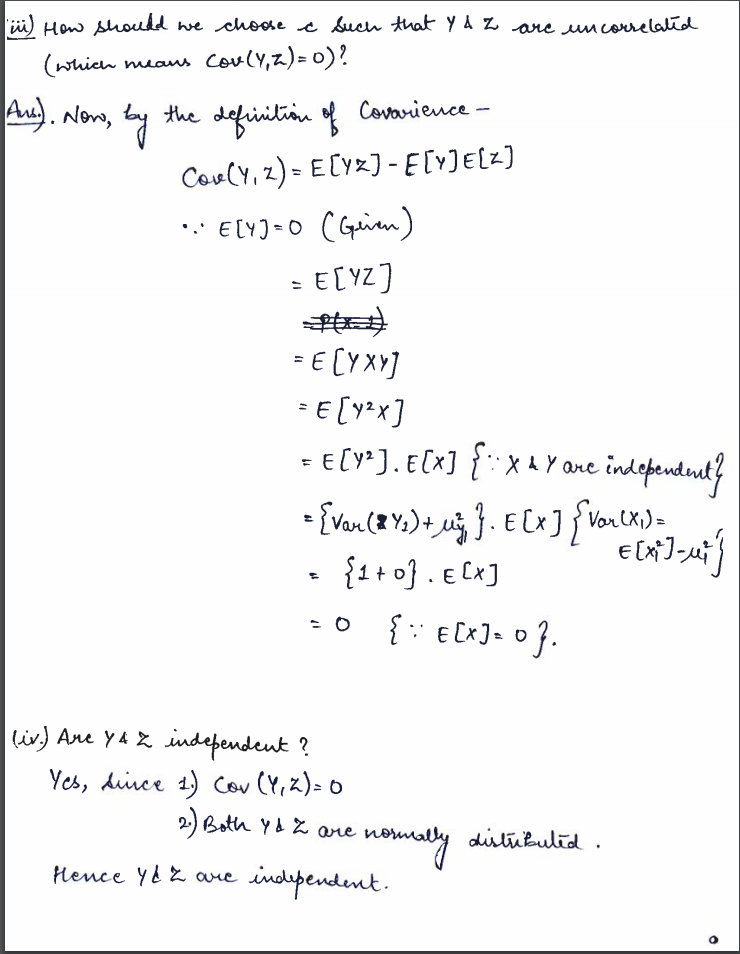 iii) How should we choose c such that Y & Z are uncorrelated
(which means Cov(Y,Z)=0)?
Ans.). Now, by the definition of Covarience –
Cov(Y,Z) = E[YZ] - E[Y]E[Z]
∵ E[Y]=0 (Given)
= E[YZ]
= E[YXY]
= E[Y²X]
= E[Y²].E[X] {∵ X & Y are independent}
= {Var(Y₁)+μ²y₁}. E[X] {Var(X₁)=
E[X₁²]-μ₁²}
= {1+0}. E[X]
= 0 {∵ E[X]=0}.
(iv.) Are Y & Z independent?
Yes, since 1.) Cov(Y,Z)=0
2.) Both Y & Z are normally distributed.
Hence Y & Z are independent.